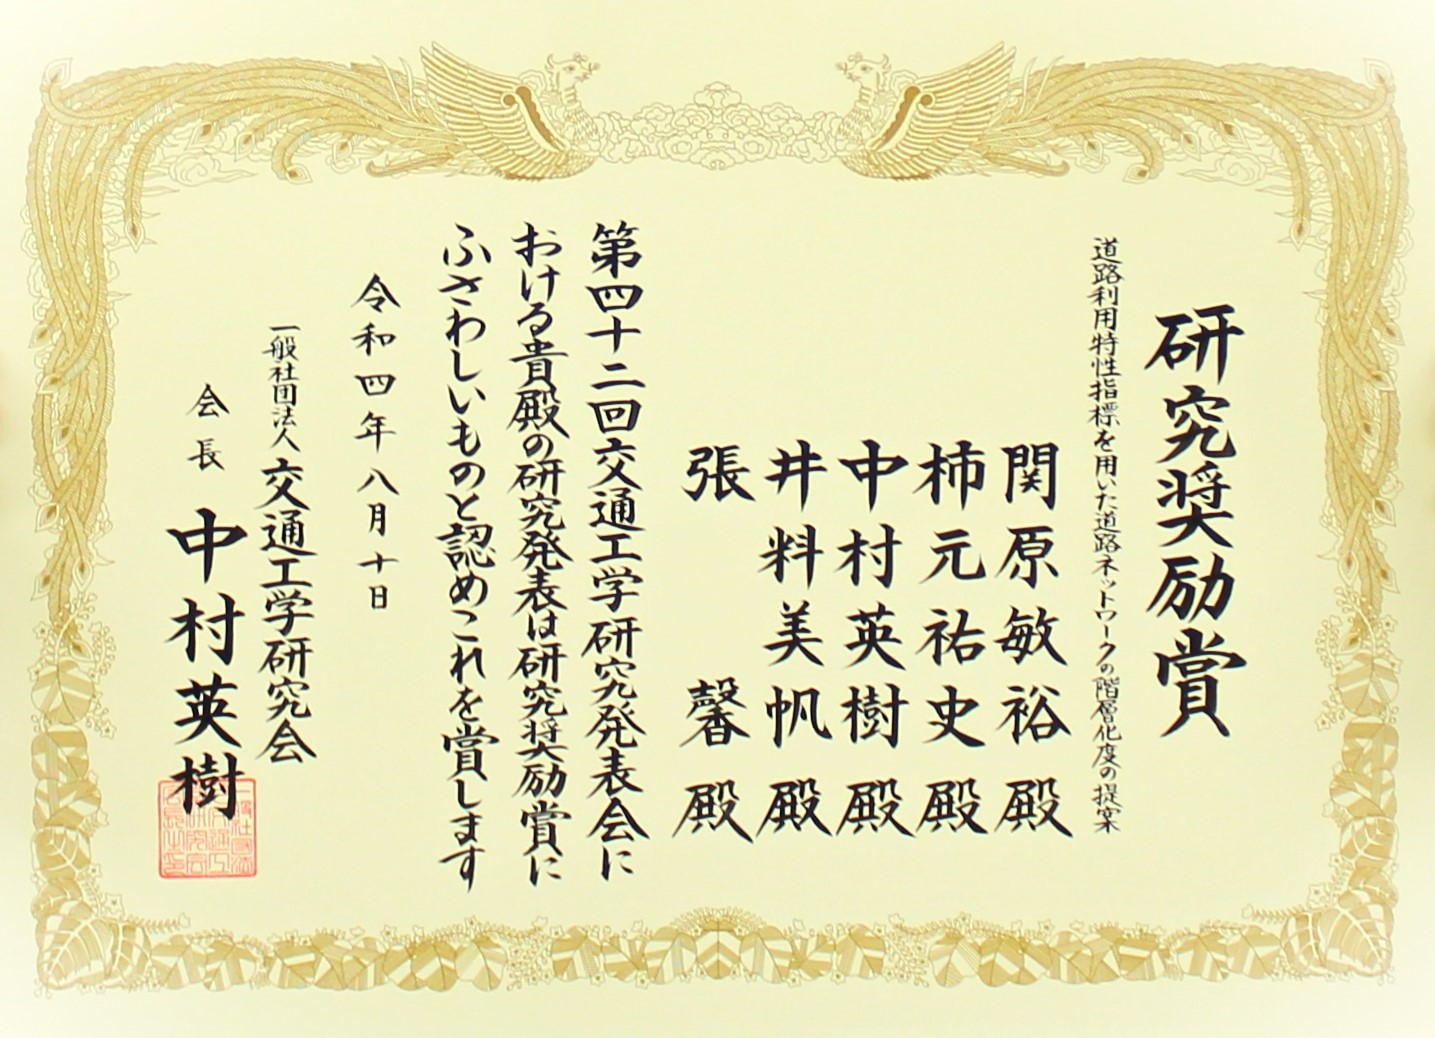 研究奨励賞
道路利用特性指標を用いた道路ネットワークの階層化度の提案
関原敏裕殿
柿元祐史殿
中村英樹殿
井料美帆殿
張馨殿
第四十二回交通工学研究発表会に
おける貴殿の研究発表は研究奨励賞に
ふさわしいものと認めこれを賞します
令和四年八月十日
一般社団法人交通工学研究会
会長中村英樹